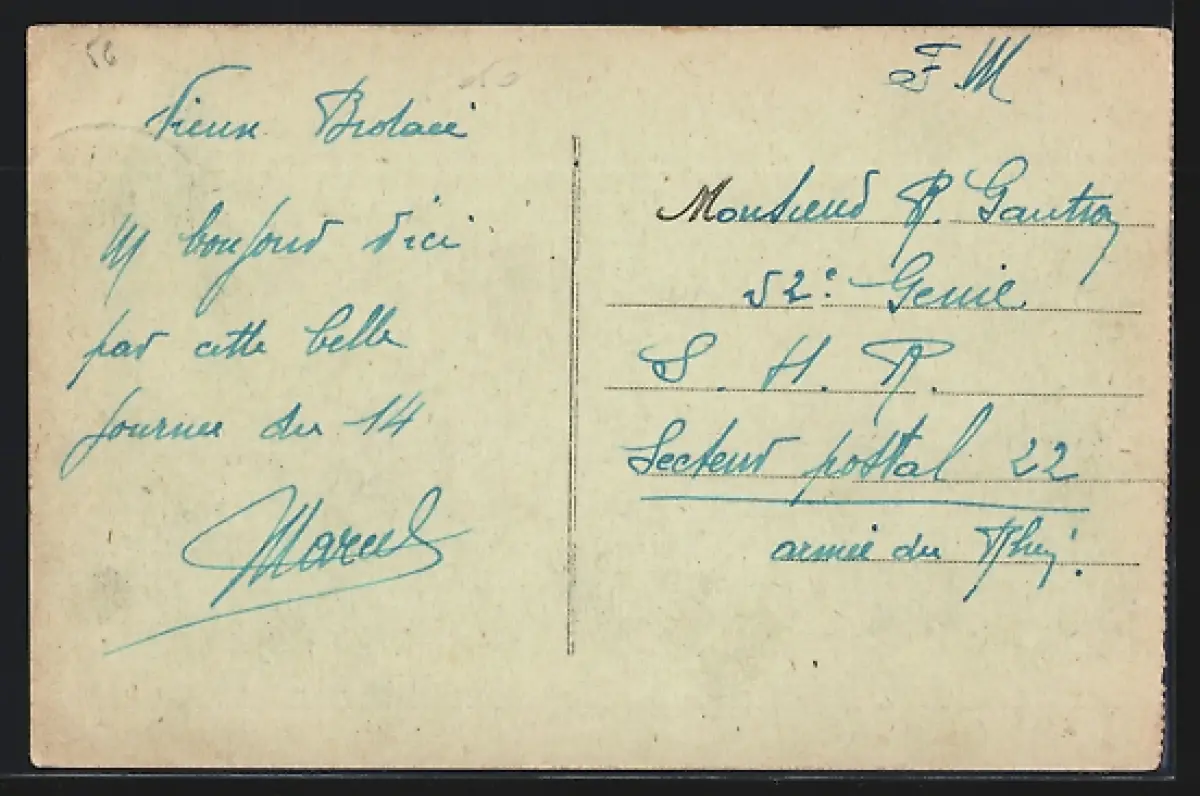 56
Vieux
Un bonjour d'ici
par cette belle
journée du 14
Marcel
F M
Monsieur R. Gautron
52e Génie
S. H. R.
Secteur postal 22
armée du Rhin.